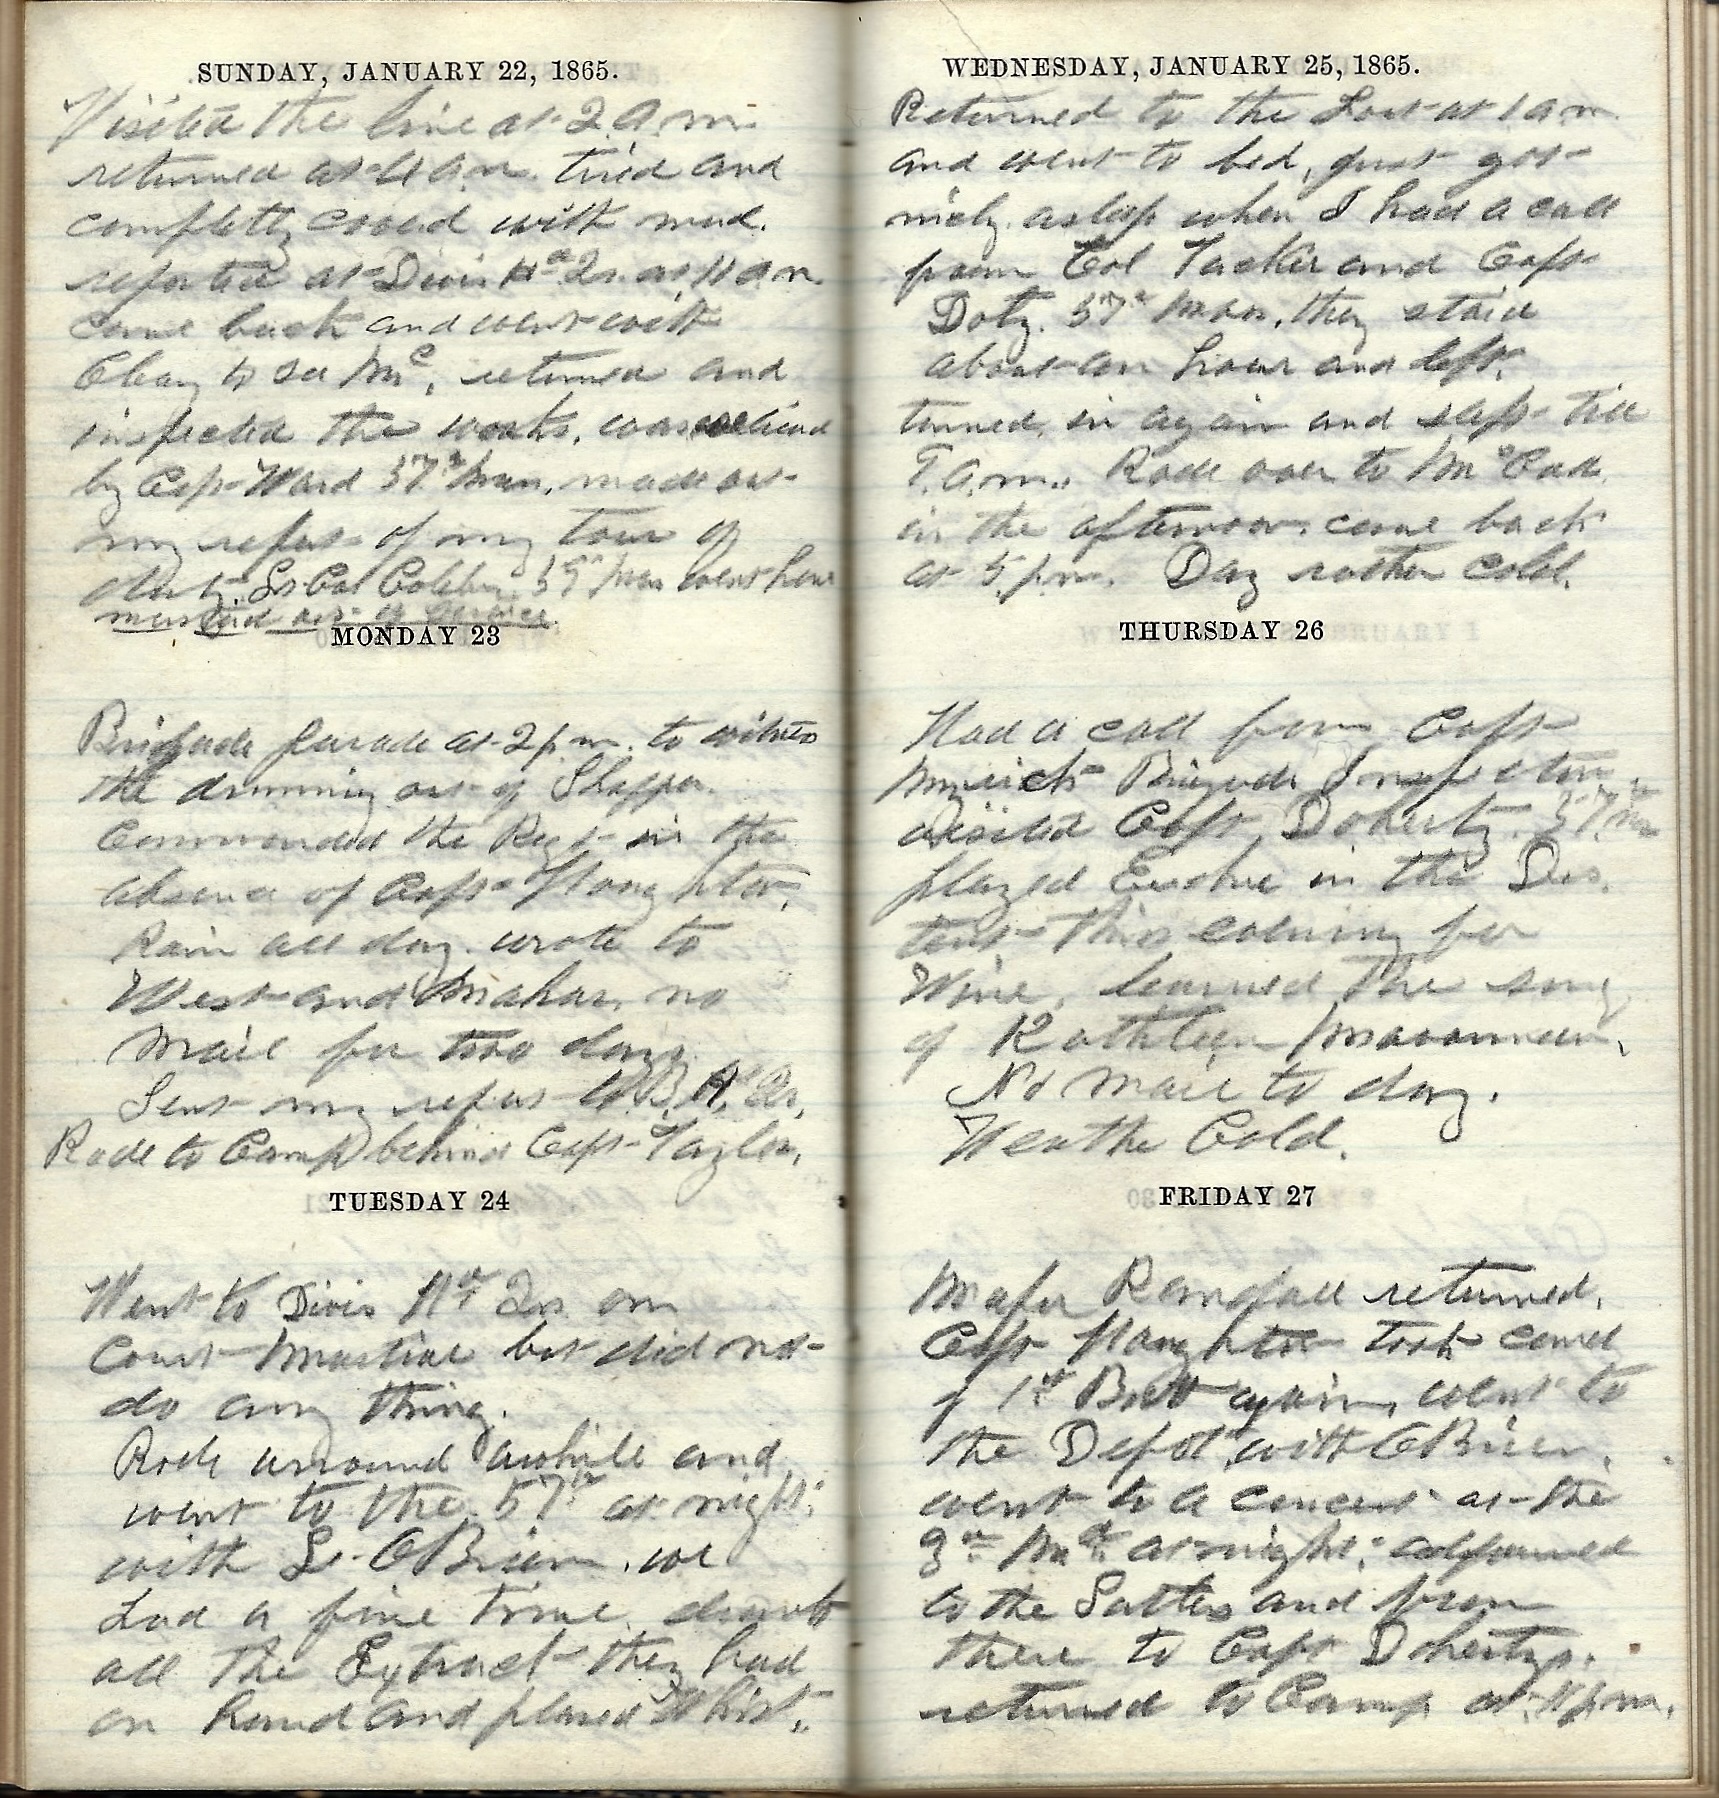 SUNDAY, JANUARY 22, 1865.
Visited the line at 2 a.m.
returned at 4 a.m. tired and
completly coved with mud.
reported at Divis Hd Qrs. at 11 am
came back and went with
Clary to see Mc, returned and
inspected the works, was relieved
by Capt Ward 57th Mass. made out
my report of my tour of
duty. Lt Col 59th Mass went home
mustered out of service.
MONDAY 23
Brigade parade at 2 p.m. to witness
the drumming out of
Commanded the Regt in the
absence of Capt Naughton,
Rain all day. wrote to
West and Mahar, no
Mail for two days.
Sent my report to B. Hd. Qrs,
Rode to Camp behind Capt Taylor,
TUESDAY 24
Went to Divis Hd Qrs on
Court Martial but did not
do any thing.
Rode arround awhile and
went to the 57th at night
with Lt OBrien, we
had a fine time, drank
all the Extract they had
on hand and played Whist.
WEDNESDAY, JANUARY 25, 1865.
Returned to the Fort at 1 a.m.
and went to bed, just got
nicely asleep when I had a call
from Col Tucker and Capt
Doty. 57th Mass. they staid
about an hour and left.
turned in again and slept till
a.m. Rode over to McCade
in the afternoon. came back
at 5 p.m. Day rather cold.
THURSDAY 26
Had a call from Capt
Myrick Brigade Inspector,
visited Capt Doherty. 57th Mass
played Euchre in the Drs.
tent this evening for
Wine, learned the song
of Kathleen Mavourneen,
No Mail to day.
Weathe Cold.
FRIDAY 27
Major Randall returned,
Capt Naughton took comd
of 1st Batt again, went to
the Depot with OBrien.
went to a concert at the
3rd Md at night; adjourned
to the Sutlers and from
there to Capt Dohertys.
returned to Camp at 11 p.m.